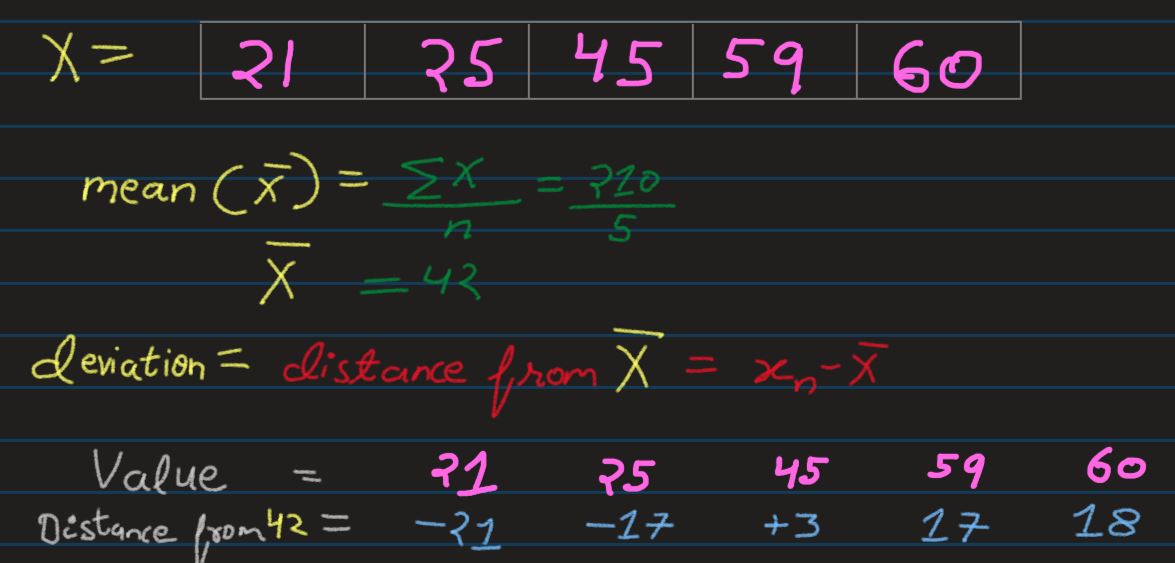 X = 21 25 45 59 60
mean (x̄) = ΣX/n = 210/5
X̄ = 42
deviation = distance from X̄ = xₙ - x̄
Value = 21 25 45 59 60
Distance from 42 = -21 -17 +3 17 18